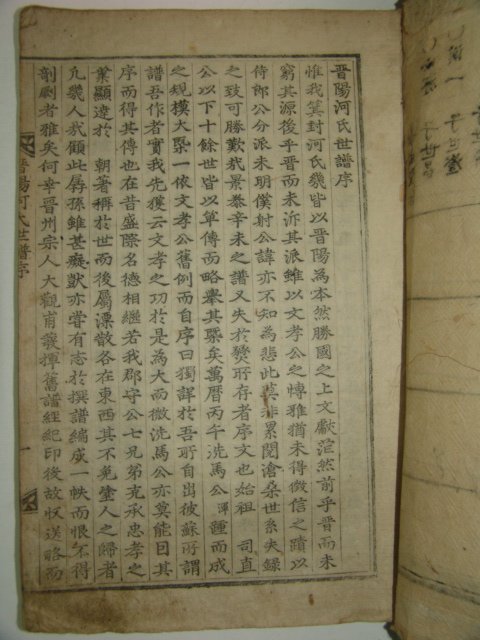 晋陽河氏世譜序
惟我箕封河氏㡬皆以晋陽為本然勝國之上文獻茫然前乎晋而未
窮其源後乎晋而未泝其派雖以文孝公之慱雅猶未得徵信之蹟以
侍郎公分派未明僕射公諱亦不知為悲此莫非累閱滄桑世系失録
之致可勝歎㦲景泰辛未之譜又失於燹所存者序文也始祖 司直
公以下十餘世皆以單傳而略舉其槩矣萬曆丙午洗馬公渾踵而成
之規模大槩一依文孝公舊例而自序曰獨詳於吾所自出彼蘇所謂
譜吾作者實我先獲云文孝之功於是為大而微洗馬公亦莫能因其
序而得其傳也在昔盛際名德相繼若我郡守公七兄弟克承忠孝之
業顯達於 朝著稱於世而後屬漂散各在東西其不免塗人之歸者
凡㡬人我顧此孱孫雖甚癡獃亦嘗有志於撰譜編成一帙而恨不得
剞劂者雅矣何幸晋州宗人大觀甫發揮舊譜經紀印後故収送略而
晋陽河氏世譜序
一